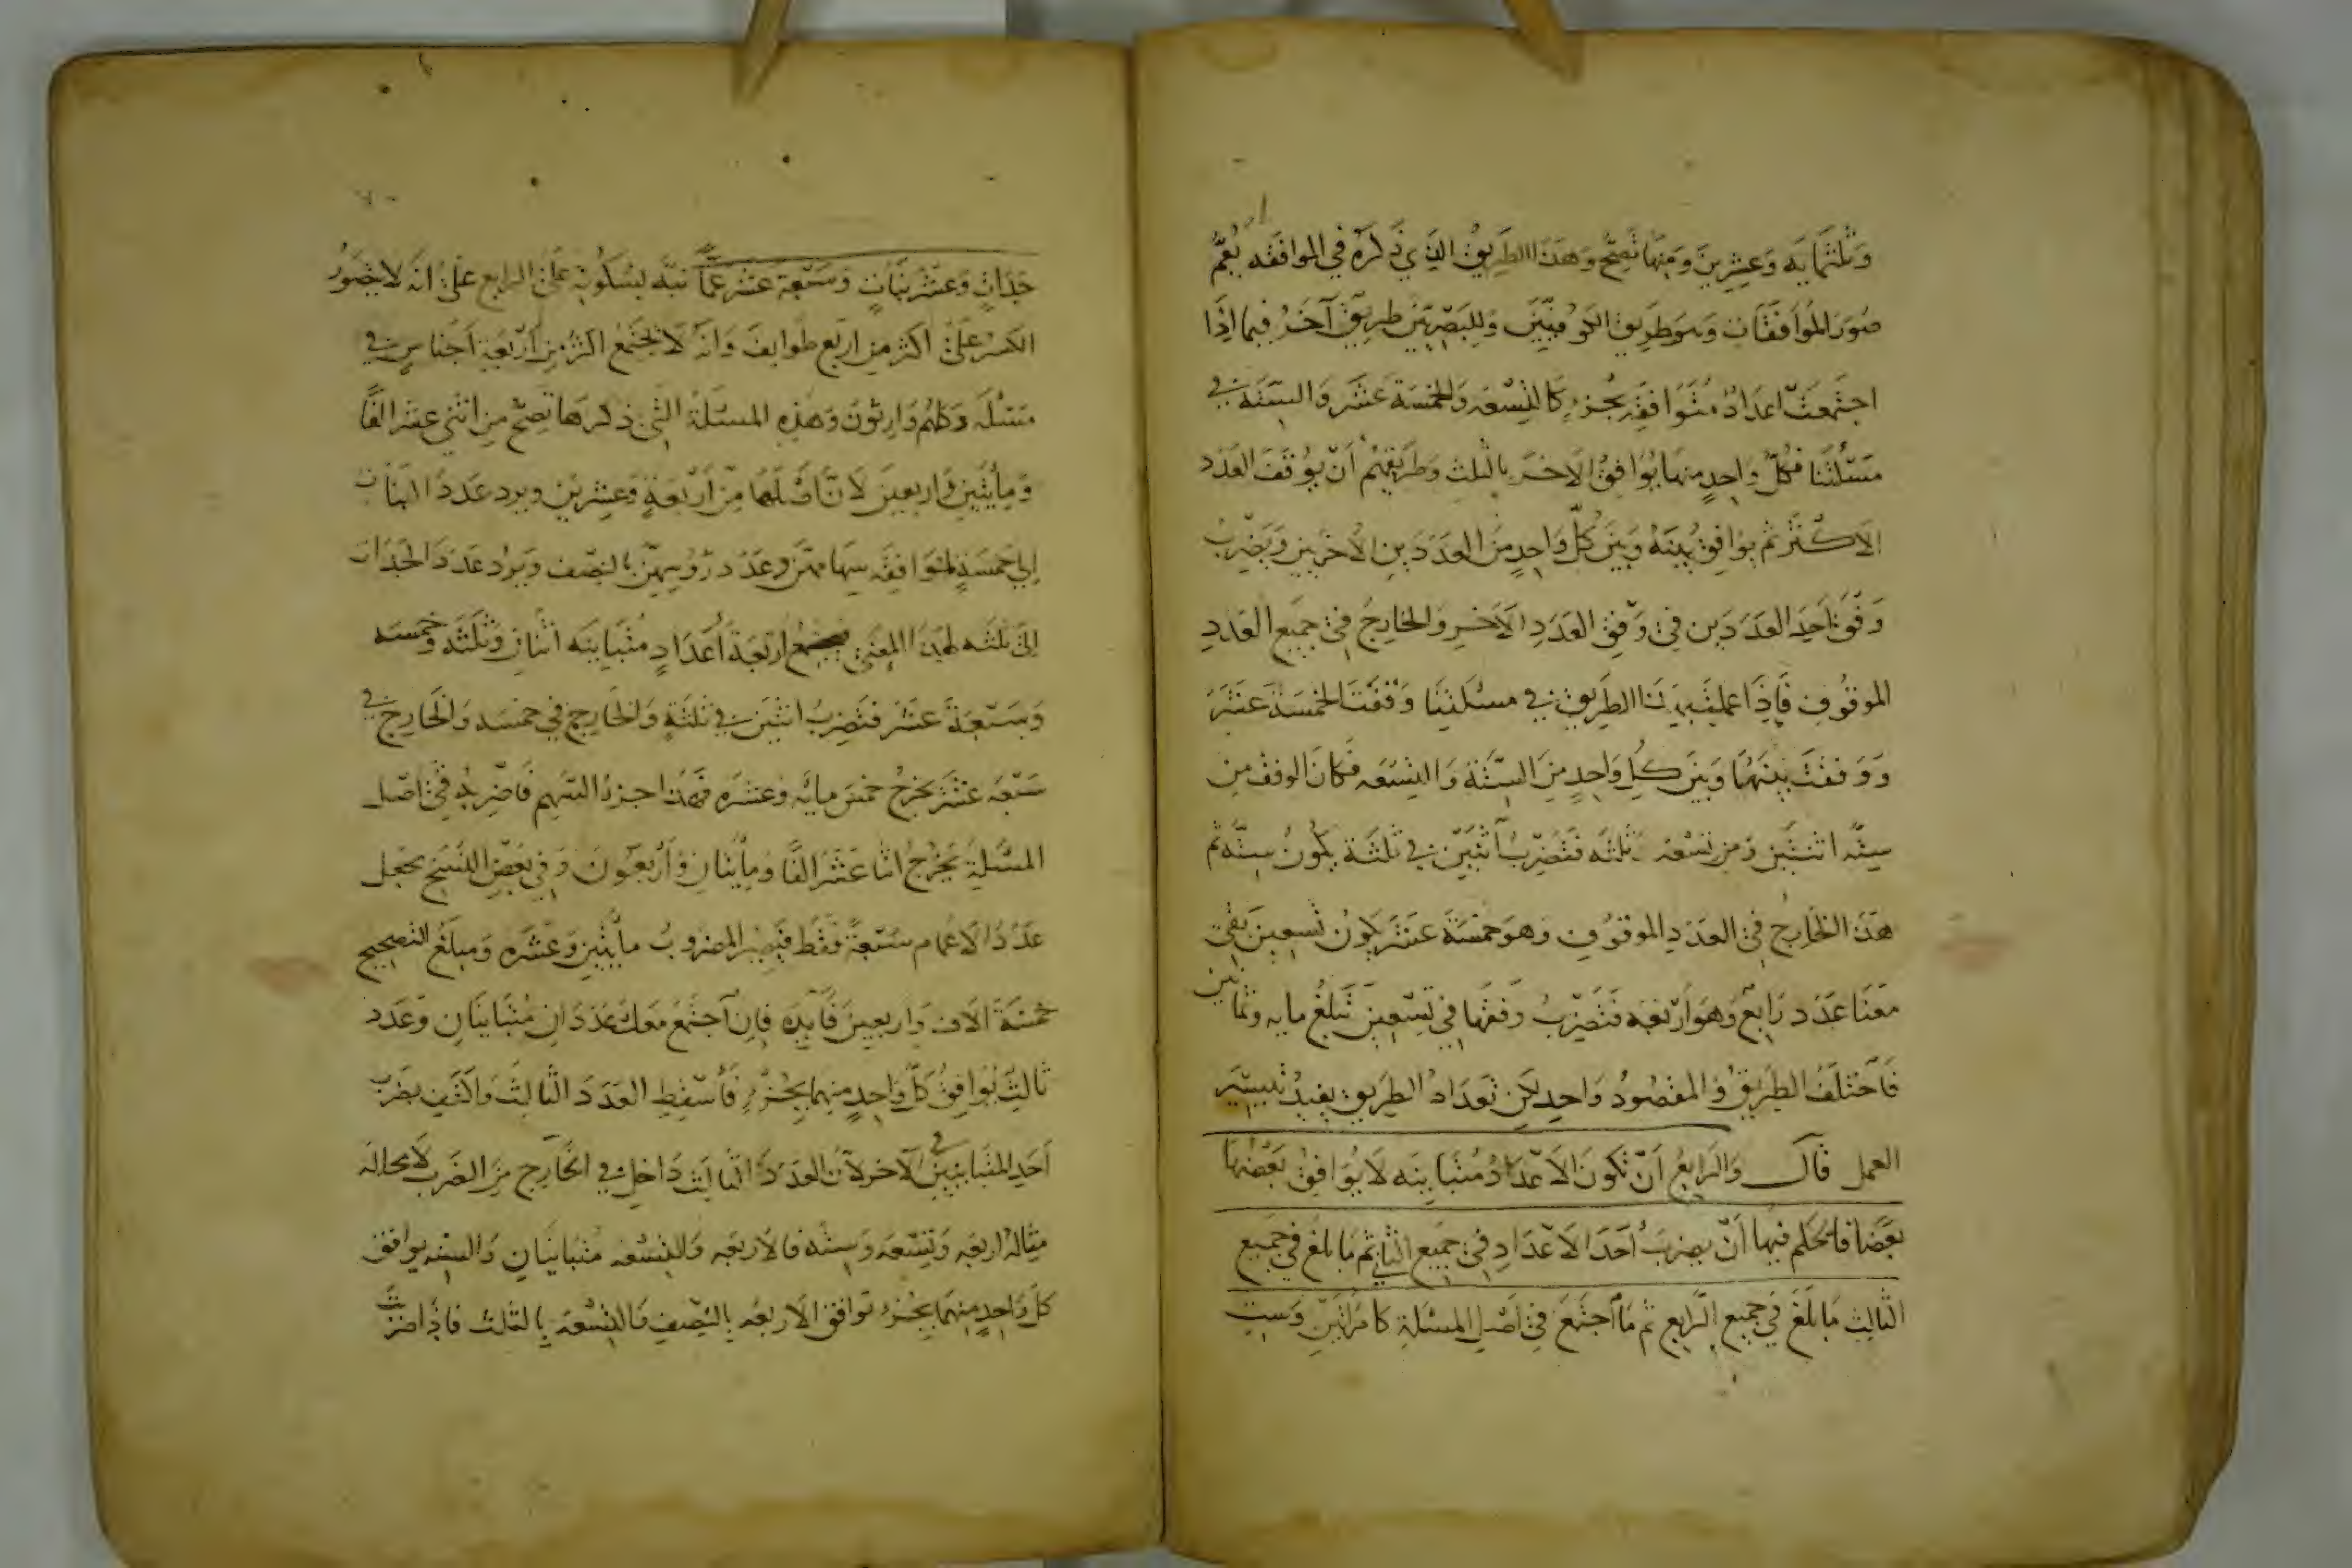 وثلثمايه وعشرين ومنها تصح وهذا الطريق الذي ذكره في الموافقه يعم
صور الموافقات وهو طريق الكوفيين وللبصريين طريق آخر فيما اذا
اجتمعت اعداد متوافقه بجزء كالتسعه والخمسة عشر والستة في
مسئلتنا فكل واحد منها يوافق الاخر بالثلث وطريقهم أن يوقف العدد
الاكثر ثم يوافق بينه وبين كل واحد من العددين الاخرين ويضرب
وفق احد العددين في وفق العدد الاخر والخارج في جميع العدد
الموقوف فإذا عملت بهذا الطريق في مسئلتنا وقفت الخمسة عشر
ووفقت بينها وبين كل واحد من الستة والتسعه فكان الوفق من
ستة اثنين ومن تسعه ثلثه فتضرب اثنين في ثلثة يكون ستة ثم
هذا الخارج في العدد الموقوف وهو خمسة عشر يكون تسعين بقي
معنا عدد رابع وهو اربعه فتضرب وفقها في تسعين تبلغ مايه وثمانين
فاختلف الطريق والمقصود واحد لكن تعداد الطريق يفيد تيسير
العمل قال والرابع أن تكون الاعداد متباينه لا يوافق بعضها
بعضا فالحكم فيها أن يضرب أحد الاعداد في جميع الثاني ثم ما بلغ في جميع
الثالث ما بلغ في جميع الرابع ثم ما اجتمع في اصل المسئلة كامراتين وست
جدات وعشر بنات وسبعة عشر عما نبه بسكوته على الرابع على انه لا يتصور
الكسر على اكثر من اربع طوايف وانه لا يجتمع اكثر من أربعة أجناس في
مسئلة وكلهم وارثون وهذه المسئلة التي ذكرها تصح من اثني عشر الفا
ومأيتين واربعين لان اصلها من اربعة وعشرين ويرد عدد البنات
الي خمسة لموافقه سهامهن وعدد رؤسهن بالنصف ويرد عدد الجدات
الى ثلثه لهذا المعنى فيجتمع اربعة أعداد متباينه اثنان وثلثه وخمسه
وسبعة عشر فتضرب اثنين في ثلثة والخارج في خمسه والخارج في
سبعه عشر يخرج خمس مايه وعشره فهذا جزء السهم فاضربه في اصل
المسئلة يخرج اثنا عشر الفا ومأيتان وأربعون وفي بعض النسخ بجعل
عدد الاعمام سبعة فقط فيصير المضروب مأيتين وعشره ومبلغ التصحيح
خمسة الاف واربعين فايده فإن اجتمع معك عددان متباينان وعدد
ثالث يوافق كل واحد منهما بجزء فأسقط العدد الثالث واكتف بضرب
أحد المتباينين في الآخر لأن العدد الثالث داخل في الخارج من الضرب لا محالة
مثاله اربعه وتسعه وسته فالاربعه والتسعه متباينان والسته يوافق
كل واحد منهما بجزء توافق الاربعه بالنصف والتسعه بالثلث فاذا ضربت